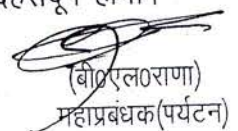 (बी0एल0राणा)
महाप्रबंधक(पर्यटन)